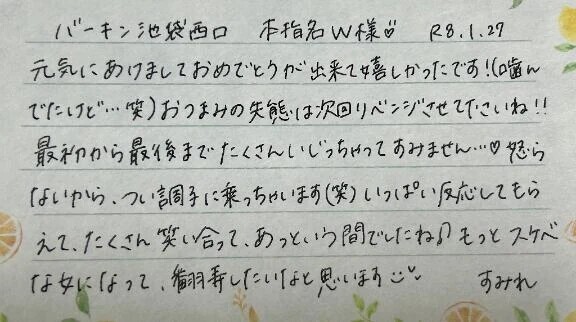 バーキン池袋西口 本指名W様♡ R8.1.27
元気にあけましておめでとうが出来て嬉しかったです!(噛ん
でたけど…笑)おつまみの失態は次回リベンジさせてださいね!!
最初から最後までたくさんいじっちゃってすみません…♡ 怒ら
ないから、つい調子に乗っちゃいます(笑)いっぱい反応してもら
えて、たくさん笑い合って、あっという間でしたね♪ もっとスケベ
な女になって、 したいなと思います すみれ